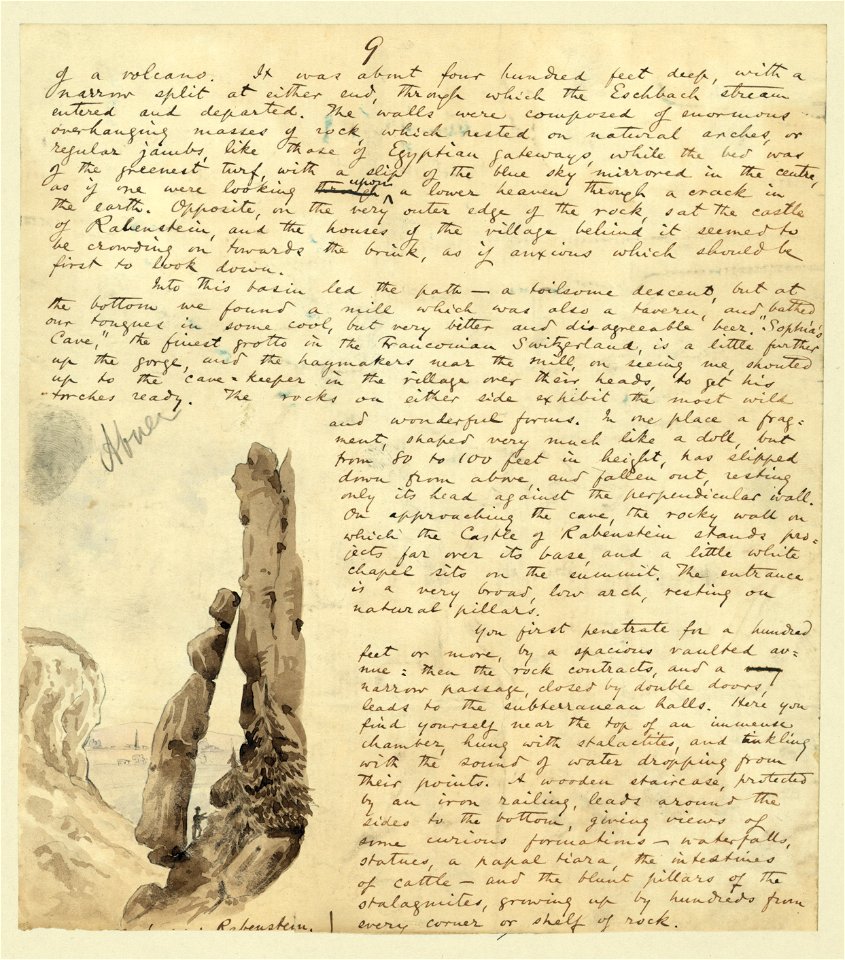 9
of a volcano. It was about four hundred feet deep, with a
narrow split at either end, through which the Eschbach stream
entered and departed. The walls were composed of enormous
overhanging masses of rock which rested on natural arches, or
regular jambs, like those of Egyptian gateways, while the bed was
of the greenest turf, with a slip of the blue sky mirrored in the centre,
as if one were looking through upon a lower heaven through a crack in
the earth. Opposite, on the very outer edge of the rock, sat the castle
of Rabenstein, and the houses of the village behind it seemed to
be crowding on towards the brink, as if anxious which should be
first to look down.
Into this basin led the path — a toilsome descent, but at
the bottom we found a mill which was also a tavern, and bathed
our tongues in some cool, but very bitter and disagreeable beer. "Sophia's
Cave," the finest grotto in the Franconian Switzerland, is a little further
up the gorge, and the haymakers near the mill, on seeing me, shouted
up to the cave-keeper in the village over their heads, to get his
torches ready. The rocks on either side exhibit the most wild
and wonderful forms. In one place a frag=
ment, shaped very much like a doll, but
from 80 to 100 feet in height, has slipped
down from above, and fallen out, resting
only its head against the perpendicular wall.
On approaching the cave, the rocky wall on
which the Castle of Rabenstein stands pro=
jects far over its base, and a little white
chapel sits on the summit. The entrance
is a very broad, low arch, resting on
natural pillars.
You first penetrate for a hundred
feet or more, by a spacious vaulted av=
nue: then the rock contracts, and a
narrow passage, closed by double doors,
leads to the subterranean halls. Here you
find yourself near the top of an immense
chamber, hung with stalactites, and tinkling
with the sound of water dropping from
their points. A wooden staircase, protected
by an iron railing, leads around the
sides to the bottom, giving views of
some curious formations — waterfalls,
statues, a papal tiara, the intestines
of cattle — and the blunt pillars of the
stalagmites, growing up by hundreds from
every corner or shelf of rock.
Abner
Rabenstein.